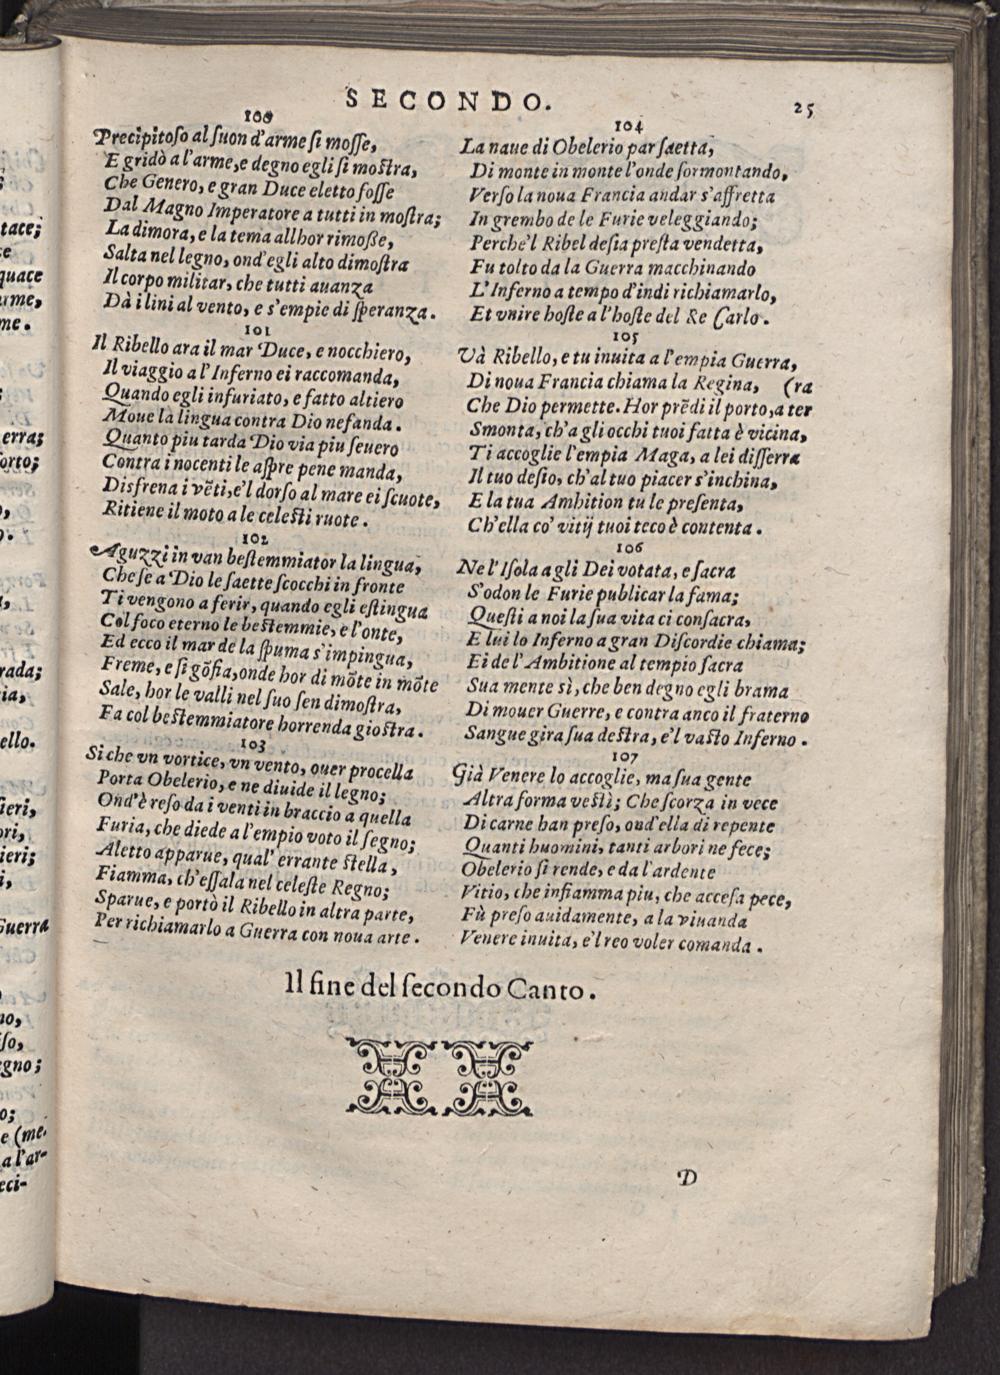 SECONDO.
25
100
Precipitoso al suon d'arme si mosse,
E gridò a l'arme, e degno egli si mostra,
Che Genero, e gran Duce eletto fosse
Dal Magno Imperatore a tutti in mostra;
La dimora, e la tema allhor rimosse,
Salta nel legno, ond'egli alto dimostra
Il corpo militar, che tutti auanza
Dà i lini al vento, e s'empie di speranza.
101
Il Ribello ara il mar Duce, e nocchiero,
Il viaggio a l'Inferno ei raccomanda,
Quando egli infuriato, e fatto altiero
Moue la lingua contra Dio nefanda.
Quanto piu tarda Dio via piu seuero
Contra i nocenti le aspre pene manda,
Disfrena i vẽti, e'l dorso al mare ei scuote,
Ritiene il moto a le celesti ruote.
102
Aguzzi in van bestemmiator la lingua,
Che se a Dio le saette scocchi in fronte
Ti vengono a ferir, quando egli estingua
Col foco eterno le bestemmie, e l'onte,
Ed ecco il mar de la spuma s'impingua,
Freme, e si gõfia, onde hor di mõte in mõte
Sale, hor le valli nel suo sen dimostra,
Fa col bestemmiatore horrenda giostra.
103
Si che vn vortice, vn vento, ouer procella
Porta Obelerio, e ne diuide il legno;
Ond'è reso da i venti in braccio a quella
Furia, che diede a l'empio voto il segno;
Aletto apparue, qual' errante stella,
Fiamma, ch'essala nel celeste Regno;
Sparue, e portò il Ribello in altra parte,
Per richiamarlo a Guerra con noua arte.
104
La naue di Obelerio par saetta,
Di monte in monte l'onde sormontando,
Verso la noua Francia andar s'affretta
In grembo de le Furie veleggiando;
Perche'l Ribel desia presta vendetta,
Fu tolto da la Guerra macchinando
L'Inferno a tempo d'indi richiamarlo,
Et vnire hoste a l'hoste del Re Carlo.
105
Và Ribello, e tu inuita a l'empia Guerra,
Di noua Francia chiama la Regina, (ra
Che Dio permette. Hor prẽdi il porto, a ter
Smonta, ch'a gli occhi tuoi fatta è vicina,
Ti accoglie l'empia Maga, a lei disserra
Il tuo desio, ch'al tuo piacer s'inchina,
E la tua Ambition tu le presenta,
Ch'ella co' vitij tuoi teco è contenta.
106
Ne l'Isola a gli Dei votata, e sacra
S'odon le Furie publicar la fama;
Questi a noi la sua vita ci consacra,
E lui lo Inferno a gran Discordie chiama;
Ei de l'Ambitione al tempio sacra
Sua mente sì, che ben degno egli brama
Di mouer Guerre, e contra anco il fraterno
Sangue gira sua destra, e'l vasto Inferno.
107
Già Venere lo accoglie, ma sua gente
Altra forma vestì; Che scorza in vece
Di carne han preso, ond'ella di repente
Quanti huomini, tanti arbori ne fece;
Obelerio si rende, e da l'ardente
Vitio, che infiamma piu, che accesa pece,
Fù preso auidamente, a la viuanda
Venere inuita, e'l reo voler comanda.
Il fine del secondo Canto.
D